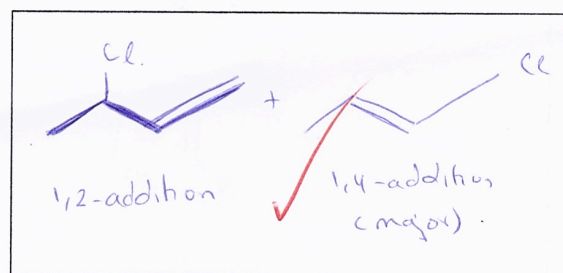 Cl.
+
Cl
1,2-addition
1,4-addition
(major).